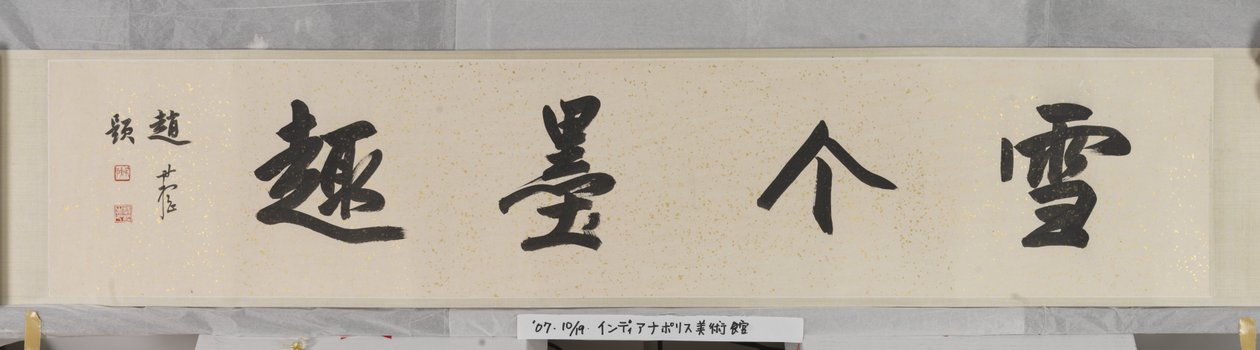 雪个墨趣
趙
題
'07. 10/19. インディアナポリス美術館